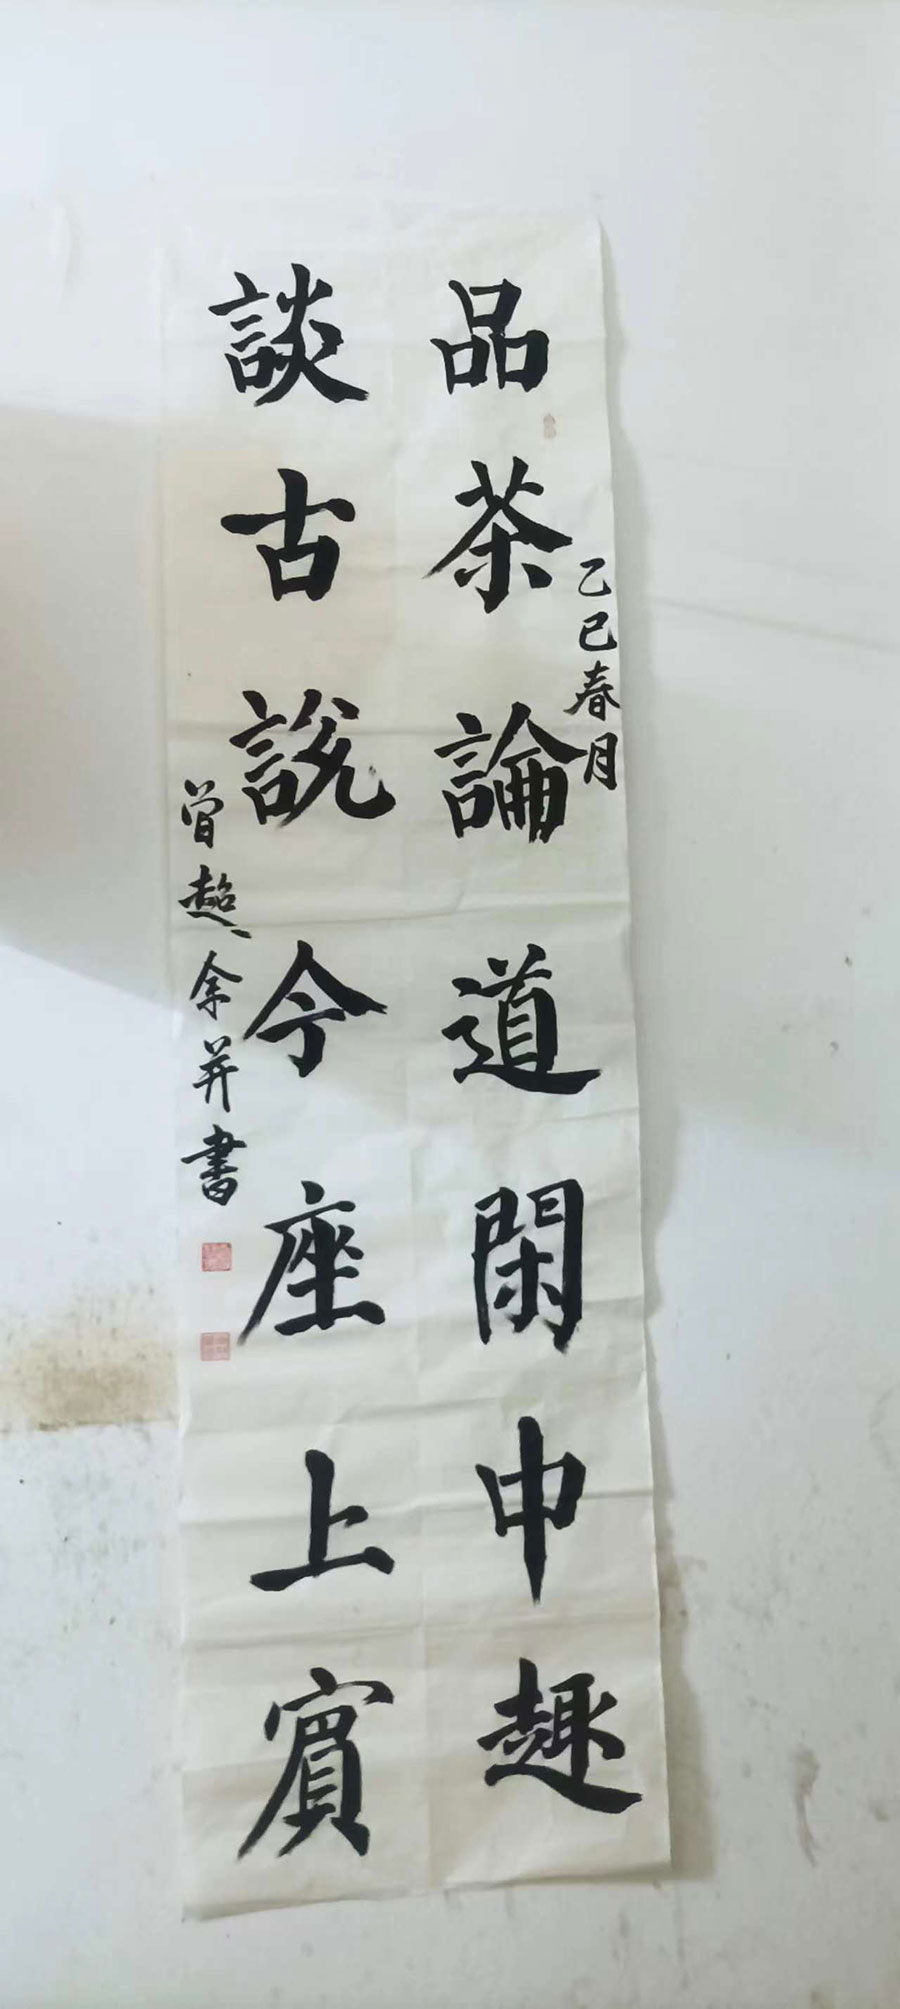 品茶論道閑中趣
乙巳春月
談古說今座上賓
曾超余并書